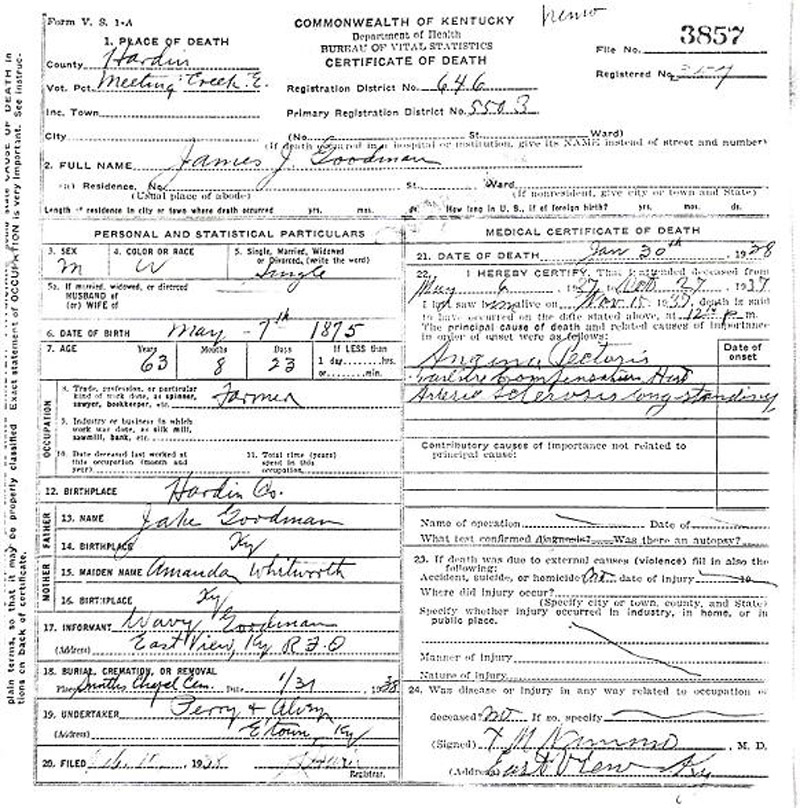 Form V. S. 1-A
COMMONWEALTH OF KENTUCKY
Department of Health
BUREAU OF VITAL STATISTICS
CERTIFICATE OF DEATH
File No. 3857
Registered No.
1. PLACE OF DEATH
County Hardin
Vot. Pct. Meeting Creek E.
Inc. Town
City
Registration District No. 646
Primary Registration District No. 5503
(No. St. Ward)
(If death occurred in a hospital or institution, give its NAME instead of street and number)
2. FULL NAME James J. Goodman
(a) Residence. No. St. Ward
(Usual place of abode) (If nonresident, give city or town and State)
Length of residence in city or town where death occurred yrs. mos. ds. How long in U. S., if of foreign birth? yrs. mos. ds.
PERSONAL AND STATISTICAL PARTICULARS
3. SEX M
4. COLOR OR RACE W
5. Single, Married, Widowed or Divorced, (write the word) Single
5a. If married, widowed, or divorced
HUSBAND of
(or) WIFE of
6. DATE OF BIRTH May - 7th 1875
7. AGE Years Months Days If LESS than
63 8 23 1 day......hrs.
or......min.
OCCUPATION
8. Trade, profession, or particular
kind of work done, as spinner,
sawyer, bookkeeper, etc. Farmer
9. Industry or business in which
work was done, as silk mill,
sawmill, bank, etc.
10. Date deceased last worked at
this occupation (month and
year)
11. Total time (years)
spent in this
occupation
12. BIRTHPLACE Hardin Co.
FATHER
13. NAME Jake Goodman
14. BIRTHPLACE Ky
MOTHER
15. MAIDEN NAME Amanda Whitworth
16. BIRTHPLACE Ky
17. INFORMANT Wavy Goodman
(Address) East View, Ky R.F.D
18. BURIAL, CREMATION, OR REMOVAL
Place Smiths Chapel Cem. Date 1/31 1938
19. UNDERTAKER Perry & Alvey
(Address) E'town, Ky
20. FILED 1938
Registrar.
MEDICAL CERTIFICATE OF DEATH
21. DATE OF DEATH Jan 30th 1938
22. I HEREBY CERTIFY, That I attended deceased from
May 6 1937 to Oct. 27 1937
I last saw him alive on Nov. 15 1937, death is said
to have occurred on the date stated above, at 12 p m.
The principal cause of death and related causes of importance
in order of onset were as follows:
Date of onset
Angina Pectoris
Failure Compensation Heart
Arterio Sclerosis long standing
Contributory causes of importance not related to
principal cause:
Name of operation Date of
What test confirmed diagnosis? Was there an autopsy?
23. If death was due to external causes (violence) fill in also the
following:
Accident, suicide, or homicide date of injury 19
Where did injury occur?
(Specify city or town, county, and State)
Specify whether injury occurred in industry, in home, or in
public place.
Manner of injury
Nature of injury
24. Was disease or injury in any way related to occupation of
deceased? no If so, specify
(Signed) M. D.
(Address) East View Ky
CAUSE OF DEATH in
plain terms, so that it may be properly classified Exact statement of OCCUPATION is very important. See instruc-
tions on back of certificate.